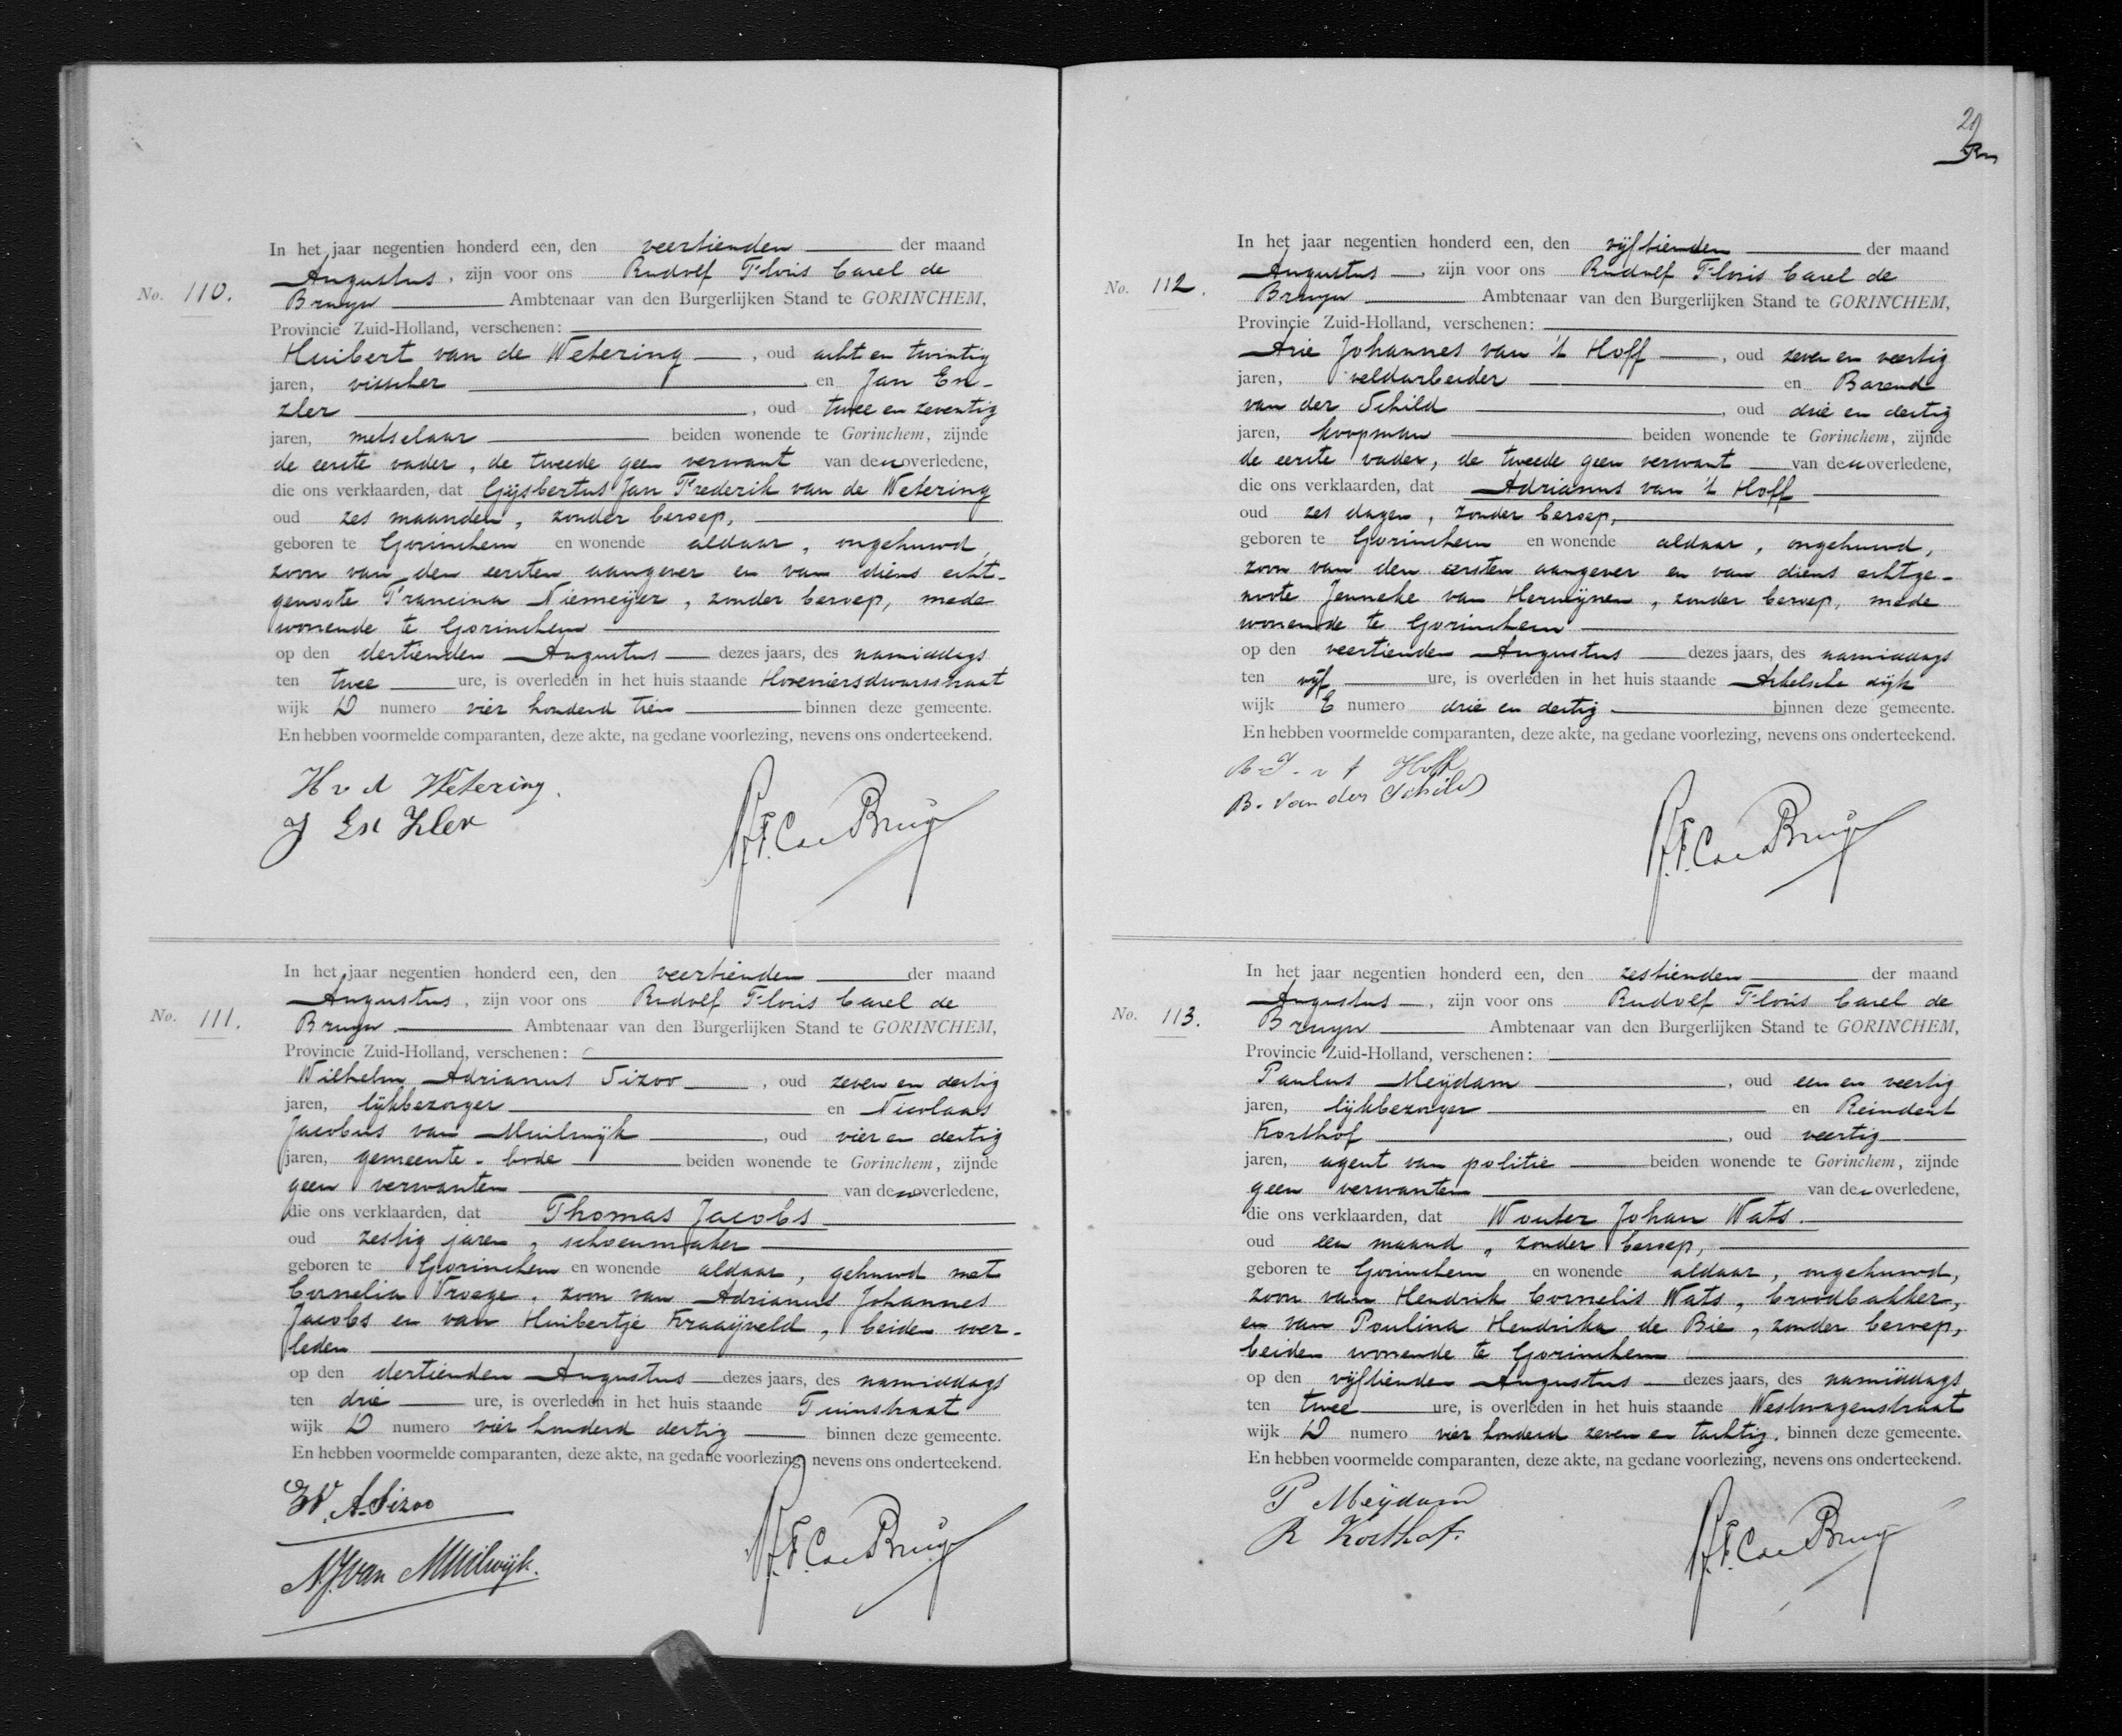 In het jaar negentien honderd een, den veertienden der maand
Augustus, zijn voor ons Rudolf Floris Carel de
No. 110.
Bruyn Ambtenaar van den Burgerlijken Stand te GORINCHEM,
Provincie Zuid-Holland, verschenen:
Huibert van de Wetering, oud acht en twintig
jaren, visscher en Jan En-
zler, oud twee en zeventig
jaren, metselaar beiden wonende te Gorinchem, zijnde
de eerste vader, de tweede geen verwant van den overledene,
die ons verklaarden, dat Gijsbertus Jan Frederik van de Wetering
oud zes maanden, zonder beroep,
geboren te Gorinchem en wonende aldaar, ongehuwd,
zoon van den eersten aangever en van diens echt-
genoote Francina Niemeijer, zonder beroep, mede
wonende te Gorinchem
op den dertienden Augustus dezes jaars, des namiddags
ten twee ure, is overleden in het huis staande Hoveniersdwarsstraat
wijk D numero vier honderd tien binnen deze gemeente.
En hebben voormelde comparanten, deze akte, na gedane voorlezing, nevens ons onderteekend.
H v d Wetering.
J En Zler
R.F.C. de Bruyn
In het jaar negentien honderd een, den veertienden der maand
Augustus, zijn voor ons Rudolf Floris Carel de
No. 111.
Bruyn Ambtenaar van den Burgerlijken Stand te GORINCHEM,
Provincie Zuid-Holland, verschenen:
Wilhelm Adrianus Sizoo, oud zeven en dertig
jaren, lijkbezorger en Nicolaas
Jacobus van Muilwijk, oud vier en dertig
jaren, gemeente-bode beiden wonende te Gorinchem, zijnde
geen verwanten van den overledene,
die ons verklaarden, dat Thomas Jacobs
oud zestig jaren, schoenmaker
geboren te Gorinchem en wonende aldaar, gehuwd met
Cornelia Vroege, zoon van Adrianus Johannes
Jacobs en van Huibertje Kraaijveld, beiden over-
leden
op den dertienden Augustus dezes jaars, des namiddags
ten drie ure, is overleden in het huis staande Tuinstraat
wijk D numero vier honderd dertig binnen deze gemeente.
En hebben voormelde comparanten, deze akte, na gedane voorlezing, nevens ons onderteekend.
W. A. Sizoo
N.J. van Muilwijk.
R.F.C. de Bruyn
In het jaar negentien honderd een, den vijftienden der maand
Augustus, zijn voor ons Rudolf Floris Carel de
No. 112.
Bruyn Ambtenaar van den Burgerlijken Stand te GORINCHEM,
Provincie Zuid-Holland, verschenen:
Arie Johannes van 't Hoff, oud zeven en veertig
jaren, veldarbeider en Barend
van der Schild, oud drie en dertig
jaren, koopman beiden wonende te Gorinchem, zijnde
de eerste vader, de tweede geen verwant van den overledene,
die ons verklaarden, dat Adrianus van 't Hoff
oud zes dagen, zonder beroep,
geboren te Gorinchem en wonende aldaar, ongehuwd,
zoon van den eersten aangever en van diens echtge-
noote Jenneke van Herwijnen, zonder beroep, mede
wonende te Gorinchem
op den veertienden Augustus dezes jaars, des namiddags
ten vijf ure, is overleden in het huis staande Arkelsche dijk
wijk E numero drie en dertig binnen deze gemeente.
En hebben voormelde comparanten, deze akte, na gedane voorlezing, nevens ons onderteekend.
A. J. v t Hoff
B. van der Schild
R.F.C. de Bruyn
In het jaar negentien honderd een, den zestienden der maand
Augustus, zijn voor ons Rudolf Floris Carel de
No. 113.
Bruyn Ambtenaar van den Burgerlijken Stand te GORINCHEM,
Provincie Zuid-Holland, verschenen:
Paulus Meijdam, oud een en veertig
jaren, lijkbezorger en Reindert
Korthof, oud veertig
jaren, agent van politie beiden wonende te Gorinchem, zijnde
geen verwanten van den overledene,
die ons verklaarden, dat Wouter Johan Wats.
oud een maand, zonder beroep,
geboren te Gorinchem en wonende aldaar, ongehuwd,
zoon van Hendrik Cornelis Wats, broodbakker,
en van Paulina Hendrika de Bie, zonder beroep,
beiden wonende te Gorinchem
op den vijftienden Augustus dezes jaars, des namiddags
ten twee ure, is overleden in het huis staande Westwagenstraat
wijk D numero vier honderd zeven en tachtig. binnen deze gemeente.
En hebben voormelde comparanten, deze akte, na gedane voorlezing, nevens ons onderteekend.
P Meijdam
R Korthof.
R.F.C. de Bruyn